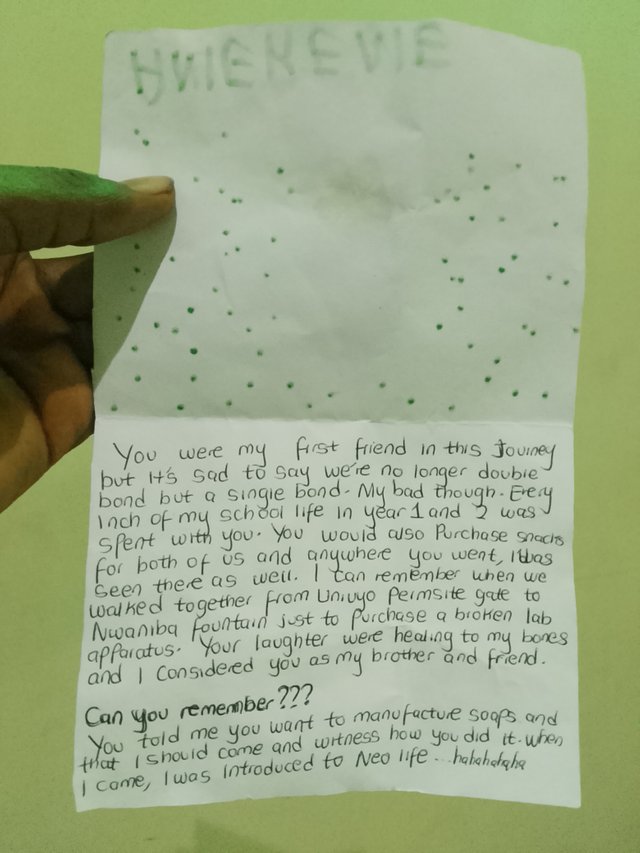 You were my first friend in this Journey
but it's sad to say we're no longer double
bond but a single bond. My bad though. Every
inch of my school life in year 1 and 2 was
spent with you. You would also Purchase snacks
for both of us and anywhere you went, I was
seen there as well. I can remember when we
walked together from Uniuyo Permsite gate to
Nwaniba fountain just to purchase a broken lab
apparatus. Your laughter were healing to my bones
and I considered you as my brother and friend.
Can you remember???
You told me you want to manufacture soaps and
that I should come and witness how you did it. when
I came, I was introduced to Neo life...hahahahaha